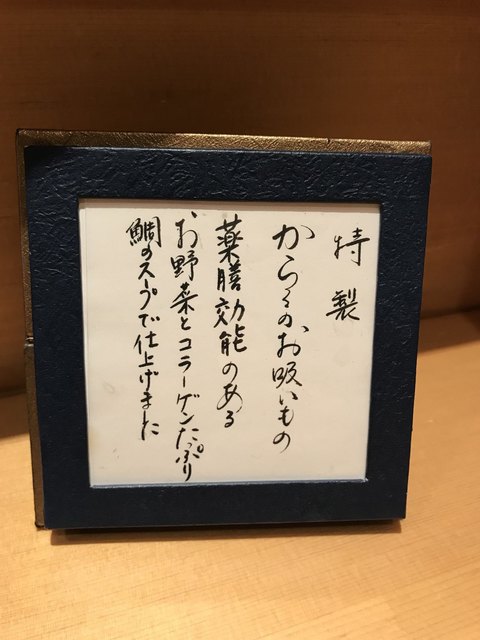 特製
からみのお吸いもの
薬膳効能のある
お野菜とコラーゲンたっぷり
鯛のスープで仕上げました